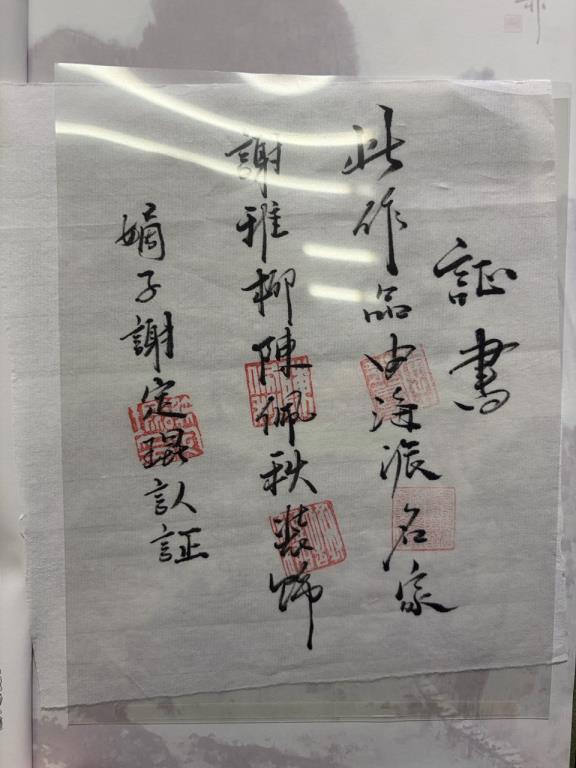 証書
此作品由海派名家
謝雅柳陳佩秋裝飾
嫡子謝定琨認証